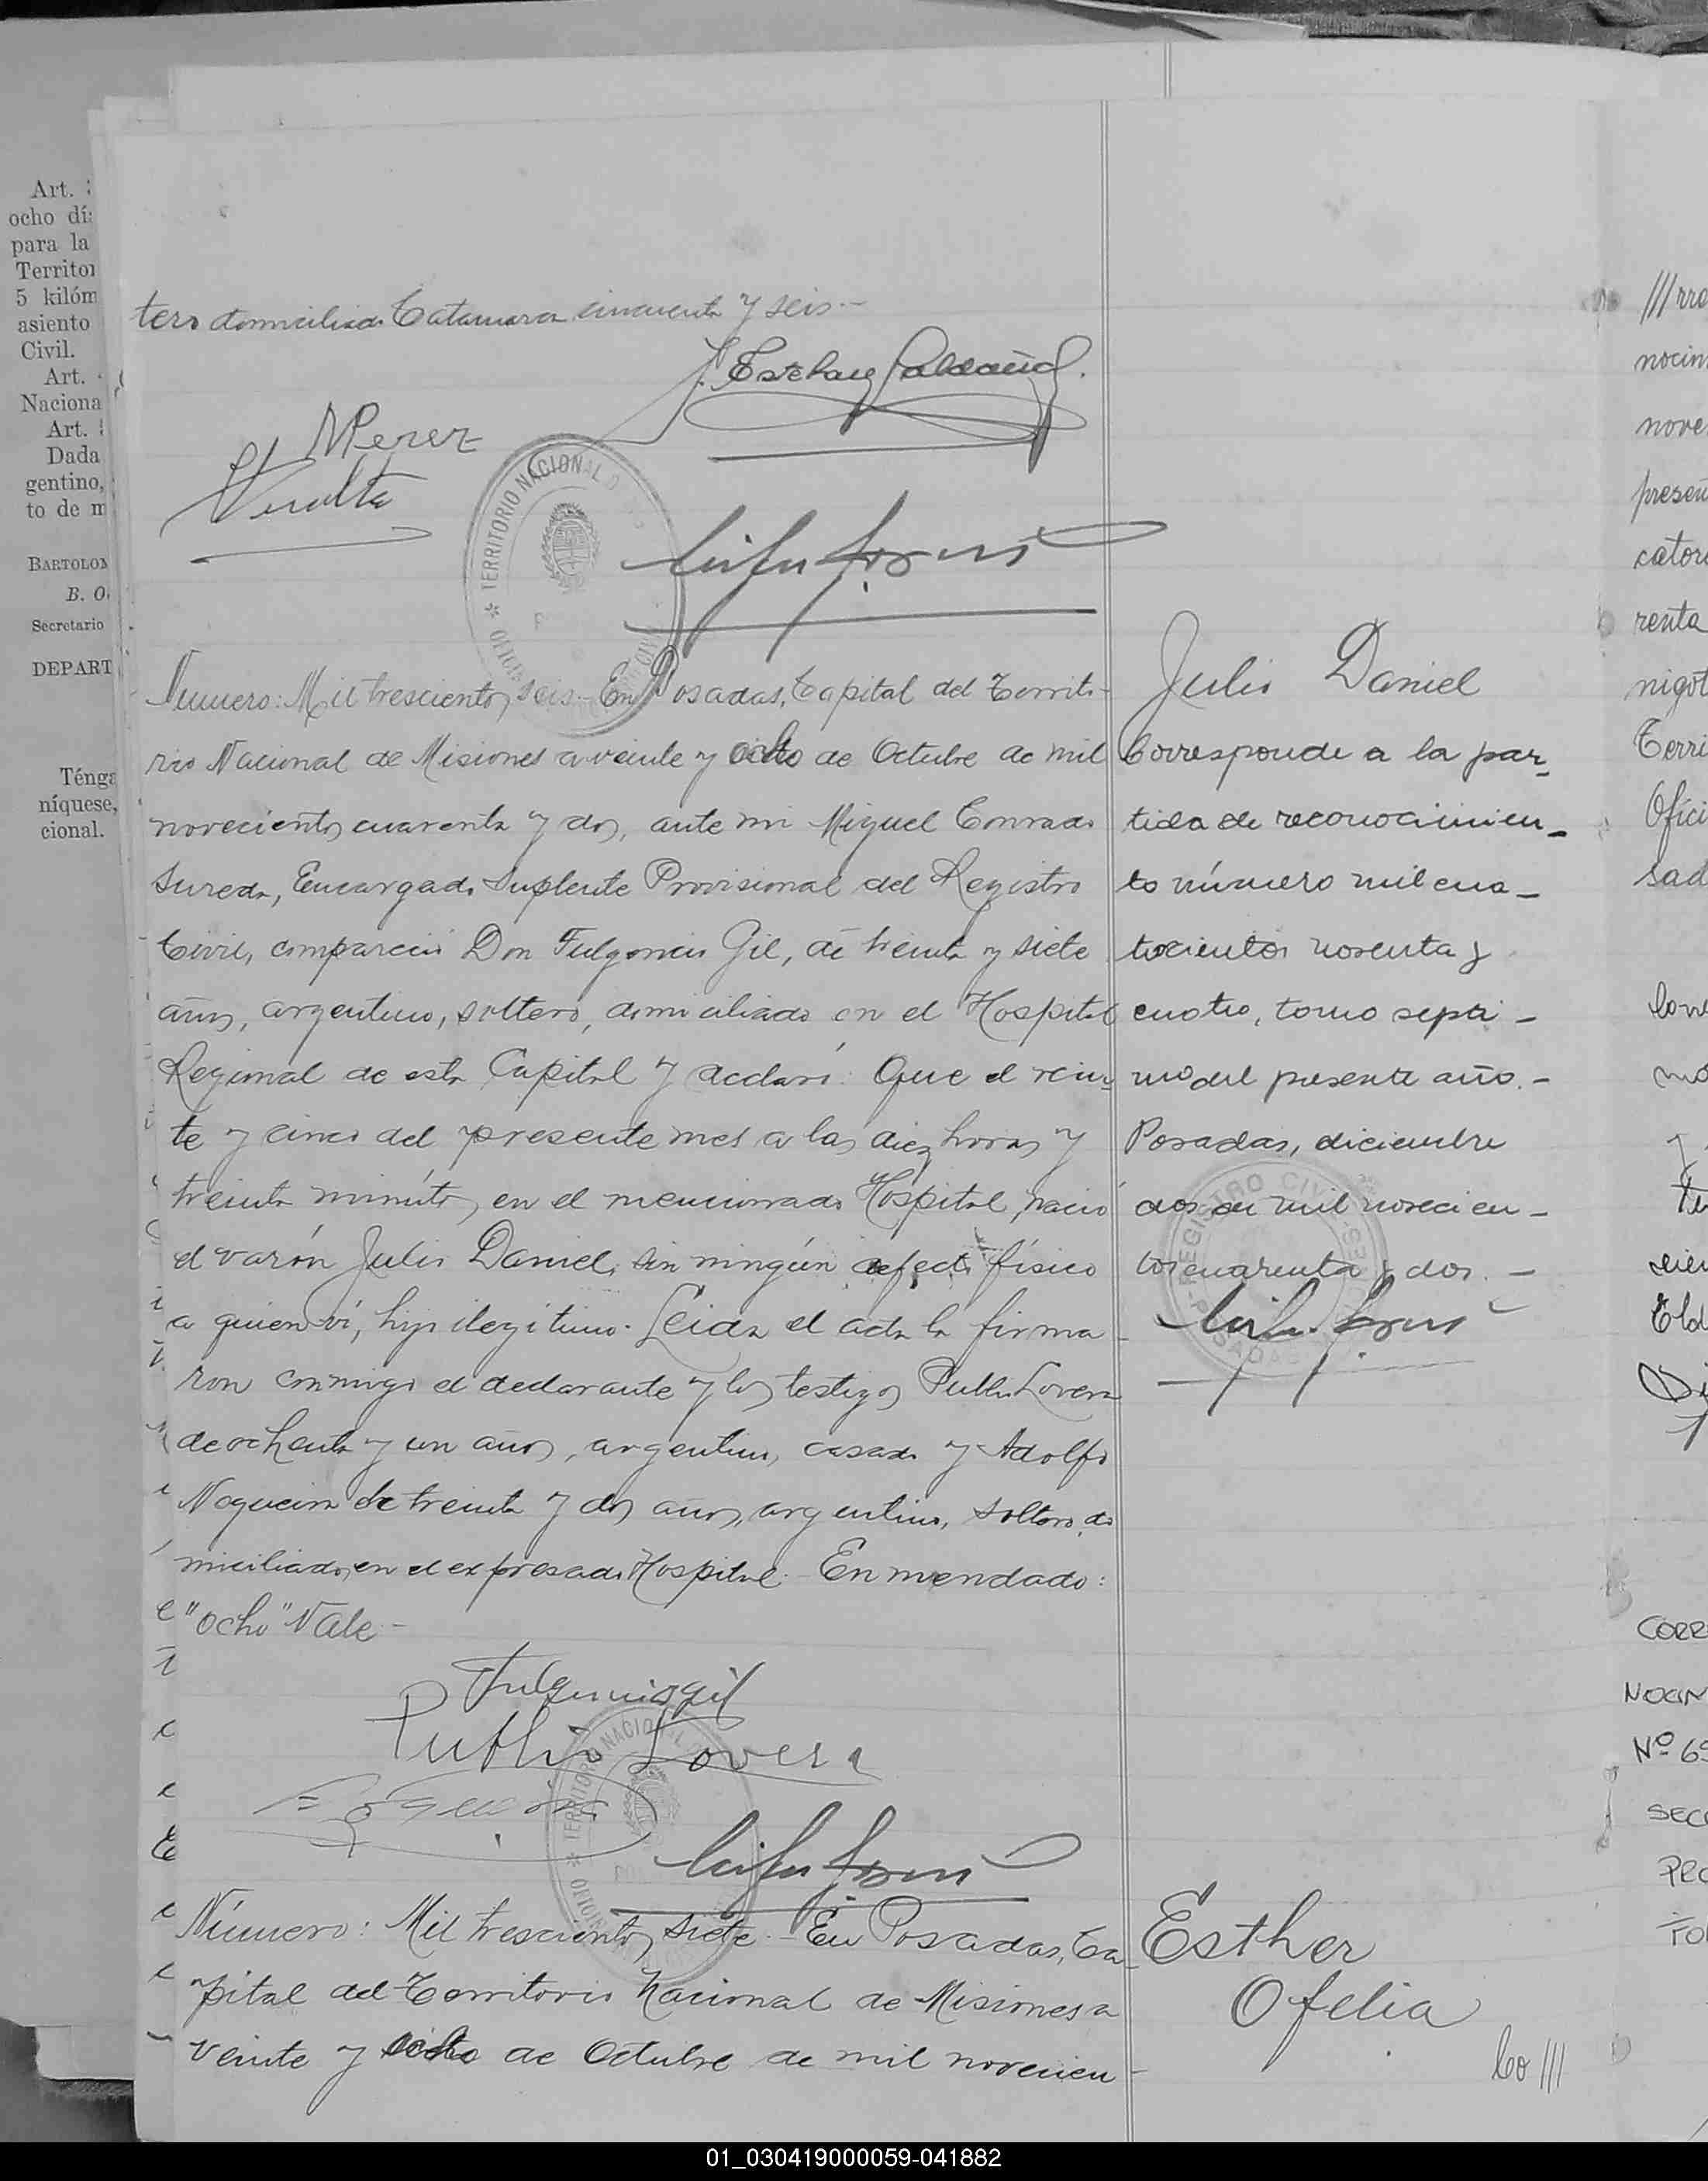 Art.
ocho día
para la
Territor
5 kilóm
asiento
Civil.
Art.
Naciona
Art.
Dada
gentino,
to de m
BARTOLOM
B. O
Secretario
DEPART
Ténga
níquese,
cional.
tero domiciliado Catamarca cincuenta y seis.-
J. Esteban
M Perez
Peralta
TERRITORIO NACIONAL D
Número: Mil trescientos seis.- En Posadas, Capital del Territo-
rio Nacional de Misiones a veinte y ocho de Octubre de mil
novecientos cuarenta y dos, ante mi Miguel Conrado
Sureda, Encargado Suplente Provisional del Registro
Civil, compareció Don Fulgencio Gil, de treinta y siete
años, argentino, soltero, domiciliado en el Hospital
Regional de esta Capital y declaró: Que el vein-
te y cinco del presente mes a las diez horas y
treinta minutos, en el mencionado Hospital, nació
el varón Julio Daniel, sin ningún defecto físico
a quien ví, hijo ilegítimo. Leida el acta la firma-
ron conmigo el declarante y los testigos Publio Lovera
de ochenta y un años, argentino, casado y Adolfo
Nogueira de treinta y dos años, argentino, soltero, do
miciliados en el expresado Hospital.- Enmendado:
"ocho" Vale.-
Fulgencio gil
Publio Lovera
TERRITORIO NACIONAL D
Número: Mil trescientos siete.- En Posadas, Ca-
pital del Territorio Nacional de Misiones a
veinte y ocho de Octubre de mil novecien-
Julio Daniel
Corresponde a la par-
tida de reconocimien-
to número mil cua-
trocientos noventa y
cuatro, tomo sépti-
mo del presente año.-
Posadas, diciembre
dos de mil novecien-
tos cuarenta y dos.-
REGISTRO CIVIL
POSADAS
Esther
Ofelia
Co ///
///rro
nocim
nove
presen
cator
renta
nigot
Terri
Ofici
sad
CORR
NOCIM
Nº 69
SECC